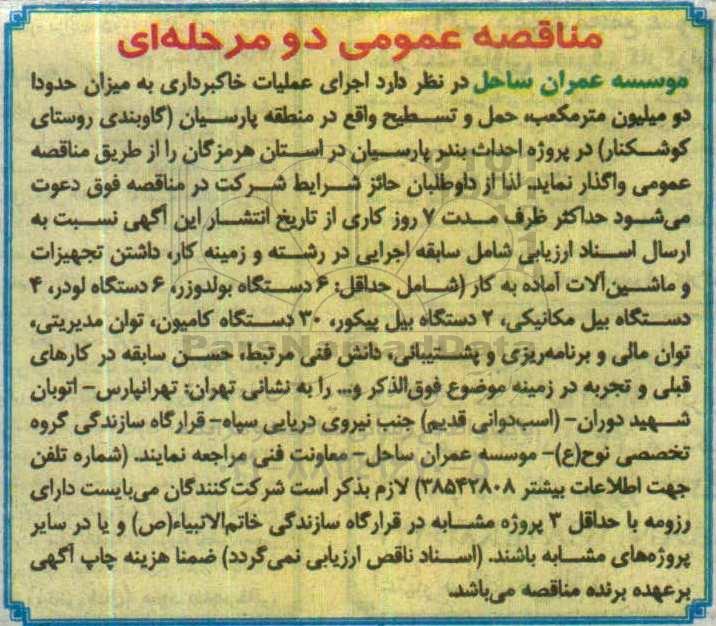 مناقصه عمومی دو مرحله‌ای
موسسه عمران ساحل در نظر دارد اجرای عملیات خاکبرداری به میزان حدودا
دو میلیون مترمکعب، حمل و تسطیح واقع در منطقه پارسیان (گاوبندی روستای
کوشکنار) در پروژه احداث بندر پارسیان در استان هرمزگان را از طریق مناقصه
عمومی واگذار نماید. لذا از داوطلبان حائز شرایط شرکت در مناقصه فوق دعوت
می‌شود حداکثر ظرف مدت ۷ روز کاری از تاریخ انتشار این آگهی نسبت به
ارسال اسناد ارزیابی شامل سابقه اجرایی در رشته و زمینه کار، داشتن تجهیزات
و ماشین‌آلات آماده به کار (شامل حداقل: ۶ دستگاه بولدوزر، ۶ دستگاه لودر، ۴
دستگاه بیل مکانیکی، ۲ دستگاه بیل پیکور، ۳۰ دستگاه کامیون، توان مدیریتی،
توان مالی و برنامه‌ریزی و پشتیبانی، دانش فنی مرتبط، حسن سابقه در کارهای
قبلی و تجربه در زمینه موضوع فوق‌الذکر و... را به نشانی تهران: تهرانپارس- اتوبان
شهید دوران- (اسب‌دوانی قدیم) جنب نیروی دریایی سپاه- قرارگاه سازندگی گروه
تخصصی نوح(ع)- موسسه عمران ساحل- معاونت فنی مراجعه نمایند. (شماره تلفن
جهت اطلاعات بیشتر ۳۸۵۴۲۸۰۸) لازم بذکر است شرکت‌کنندگان می‌بایست دارای
رزومه با حداقل ۳ پروژه مشابه در قرارگاه سازندگی خاتم‌الانبیاء(ص) و یا در سایر
پروژه‌های مشابه باشند. (اسناد ناقص ارزیابی نمی‌گردد) ضمنا هزینه چاپ آگهی
برعهده برنده مناقصه می‌باشد.
ParsNamadData